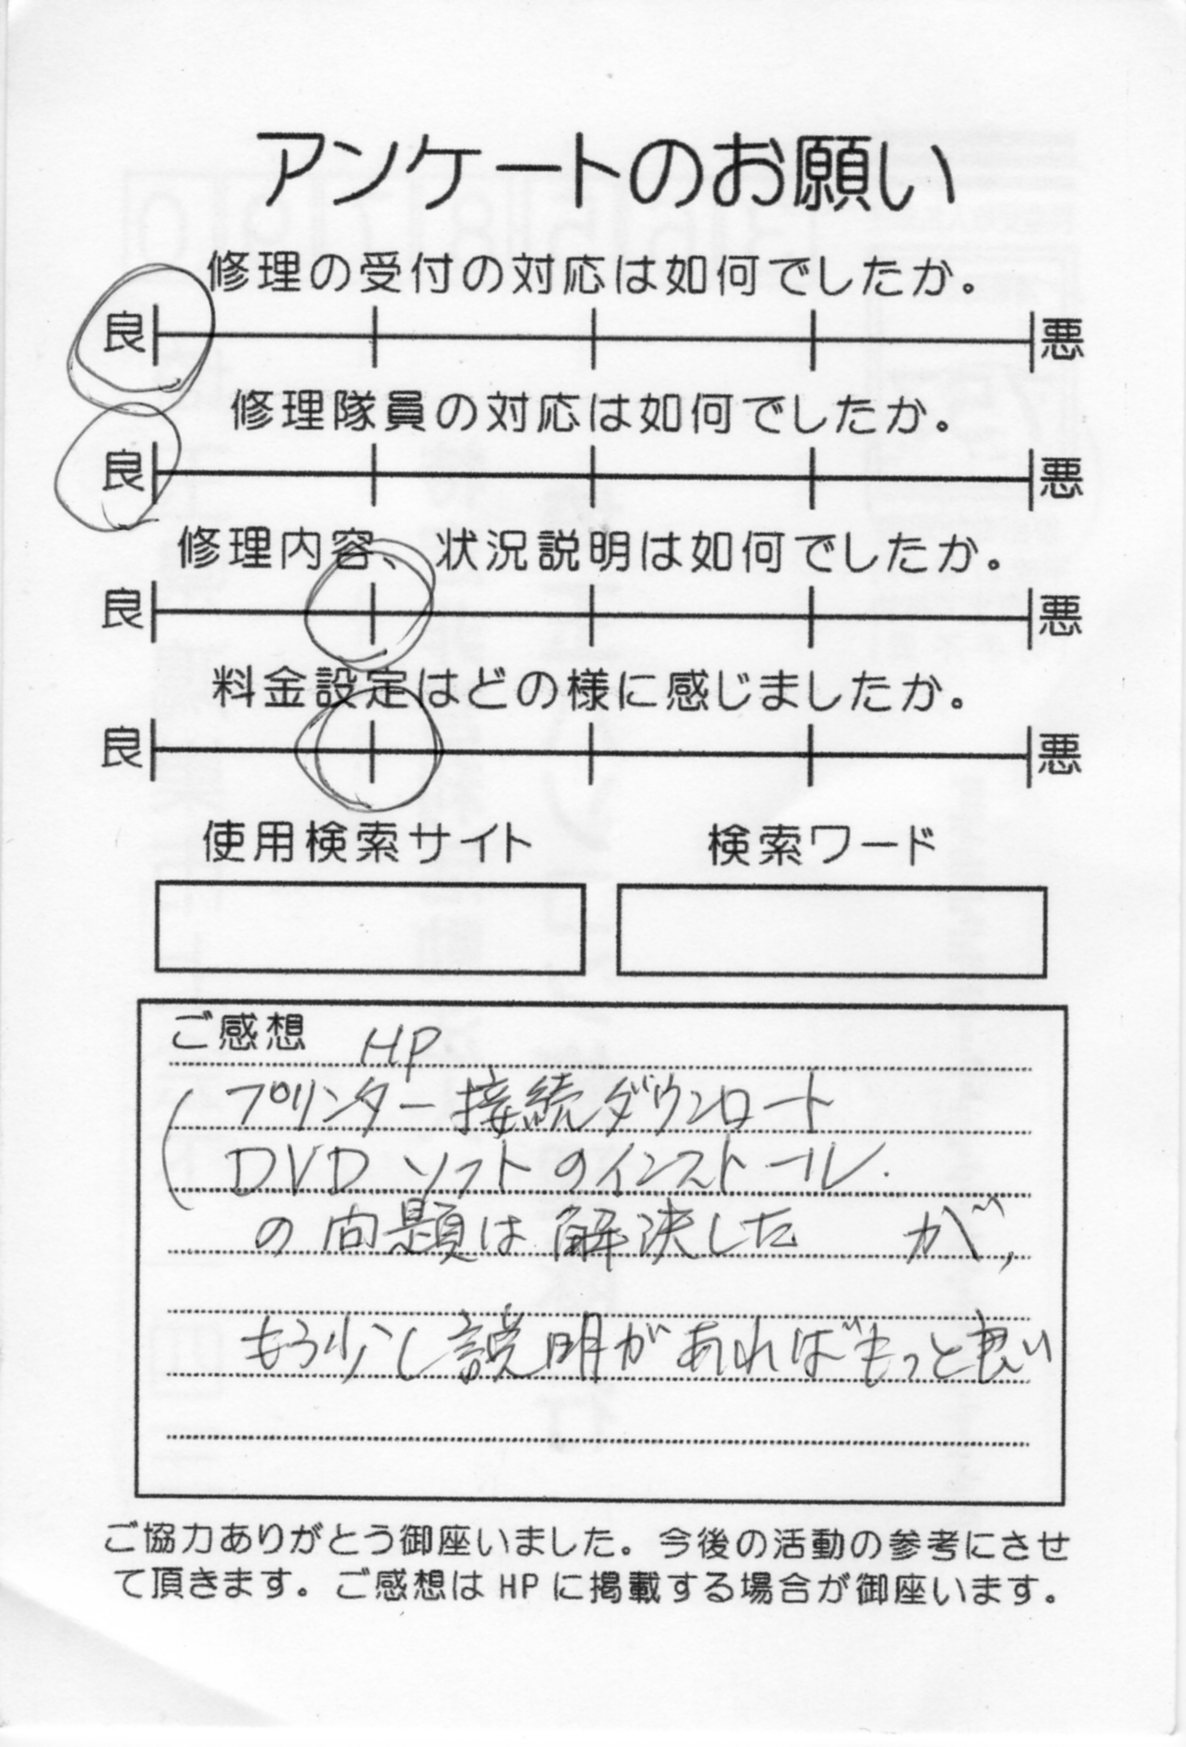 アンケートのお願い
修理の受付の対応は如何でしたか。
良 悪
修理隊員の対応は如何でしたか。
良 悪
修理内容、状況説明は如何でしたか。
良 悪
料金設定はどの様に感じましたか。
良 悪
使用検索サイト 検索ワード
ご感想 HP
(プリンター接続ダウンロート
DVDソフトのインストール.
の問題は解決した が,
もう少し説明があればもっと良い
ご協力ありがとう御座いました。今後の活動の参考にさせ
て頂きます。ご感想はHPに掲載する場合が御座います。